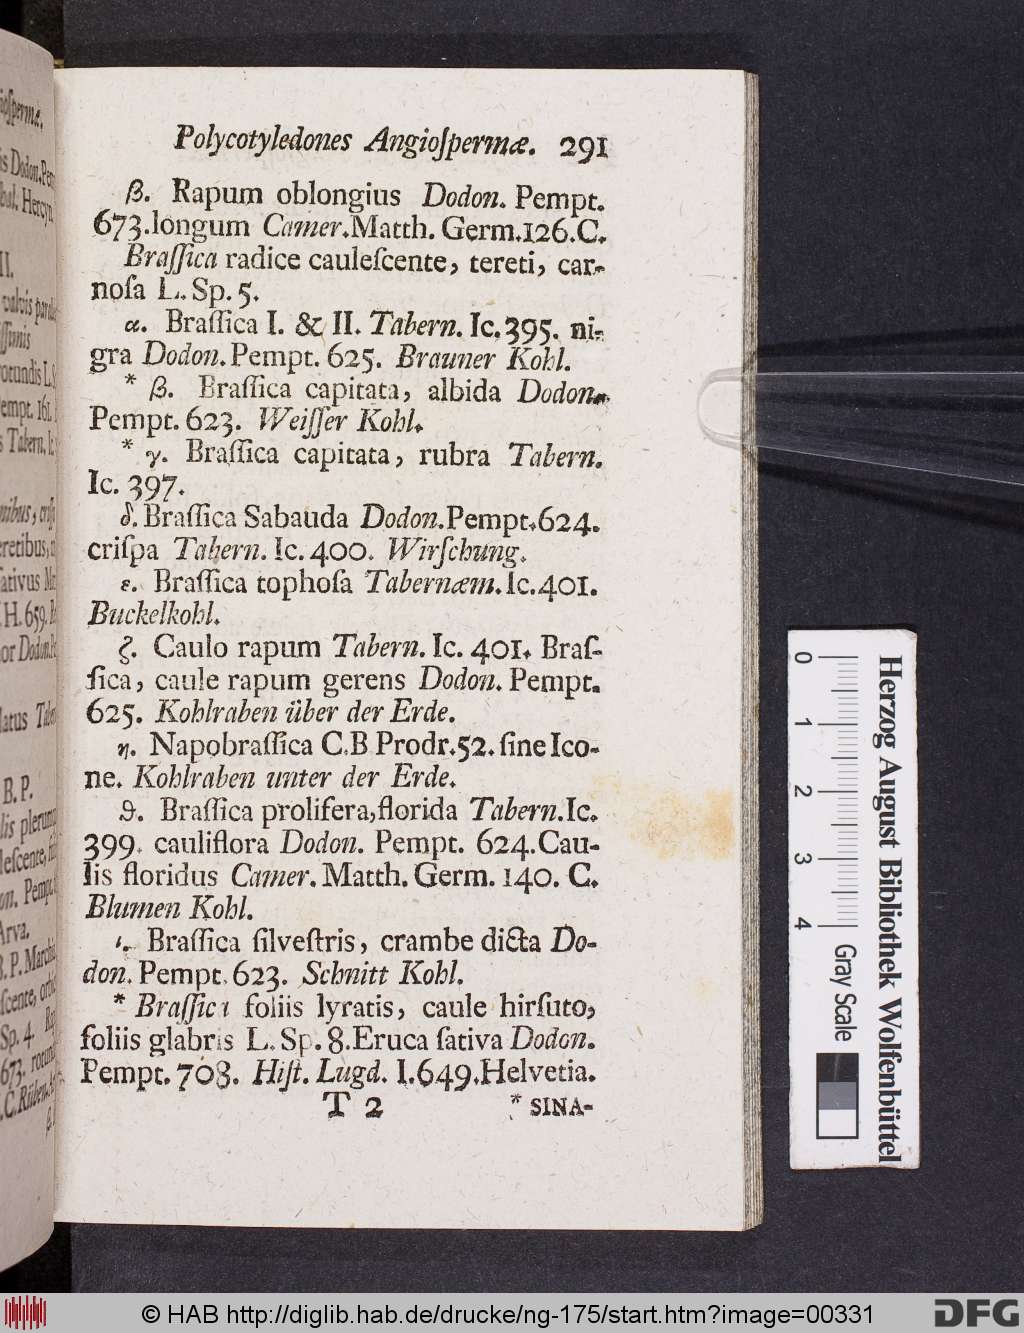 Polycotyledones Angioſpermæ. 291
β. Rapum oblongius Dodon. Pempt.
673. longum Camer. Matth. Germ. 126. C.
Braſſica radice cauleſcente, tereti, car-
noſa L. Sp. 5.
α. Braſſica I. & II. Tabern. Ic. 395. ni-
gra Dodon. Pempt. 625. Brauner Kohl.
* β. Braſſica capitata, albida Dodon.
Pempt. 623. Weiſſer Kohl.
* γ. Braſſica capitata, rubra Tabern.
Ic. 397.
δ. Braſſica Sabauda Dodon. Pempt. 624.
criſpa Tabern. Ic. 400. Wirſchung.
ε. Braſſica tophoſa Tabernæm. Ic. 401.
Buckelkohl.
ζ. Caulo rapum Tabern. Ic. 401. Braſ-
ſica, caule rapum gerens Dodon. Pempt.
625. Kohlraben über der Erde.
η. Napobraſſica C. B Prodr. 52. ſine Ico-
ne. Kohlraben unter der Erde.
ϑ. Braſſica prolifera, florida Tabern. Ic.
399. cauliflora Dodon. Pempt. 624. Cau-
lis floridus Camer. Matth. Germ. 140. C.
Blumen Kohl.
ι. Braſſica ſilveſtris, crambe dicta Do-
don. Pempt. 623. Schnitt Kohl.
* Braſſica foliis lyratis, caule hirſuto,
foliis glabris L. Sp. 8. Eruca ſativa Dodon.
Pempt. 708. Hiſt. Lugd. I. 649. Helvetia.
T 2 * SINA-
Herzog August Bibliothek Wolfenbüttel
0 1 2 3 4 Gray Scale
© HAB http://diglib.hab.de/drucke/ng-175/start.htm?image=00331
DFG